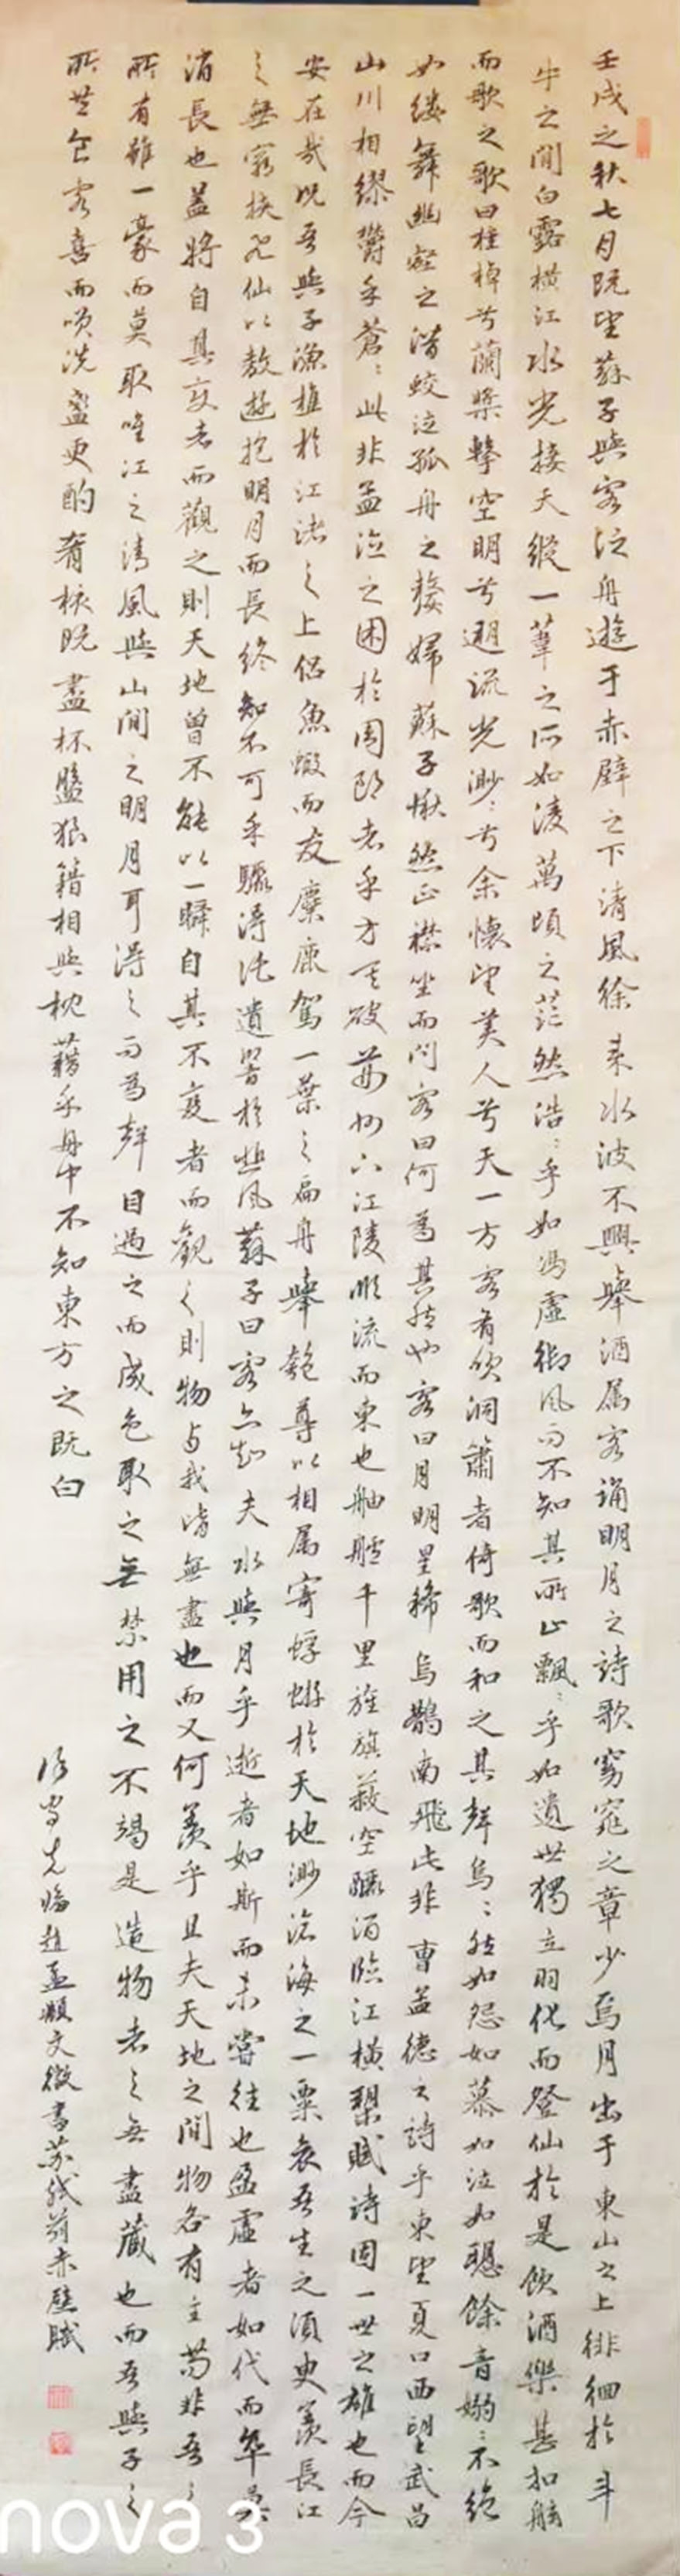 壬戌之秋七月既望蘇子與客泛舟遊于赤壁之下清風徐來水波不興舉酒属客誦明月之詩歌窈窕之章少焉月出于東山之上徘徊於斗
牛之間白露橫江水光接天縱一葦之所如凌萬頃之茫然浩〻乎如馮虛御风而不知其所止飄〻乎如遺世獨立羽化而登仙於是飲酒樂甚扣舷
而歌之歌曰桂棹兮蘭槳擊空明兮遡流光渺〻兮余懷望美人兮天一方客有吹洞簫者倚歌而和之其聲烏〻然如怨如慕如泣如聽餘音嫋〻不絕
如縷舞幽壑之潛蛟泣孤舟之嫠婦蘇子愀然正襟坐而问客曰何為其然也客曰月明星稀烏鵲南飛此非曹孟德之詩乎東望夏口西望武昌
山川相繆欝乎蒼〻此非孟德之困於周郎者乎方其破荊州下江陵順流而東也舳艫千里旌旗蔽空釃酒臨江橫槊賦詩固一世之雄也而今
安在哉况吾與子漁樵於江渚之上侣魚蝦而友麋鹿駕一葉之扁舟舉匏尊以相属寄蜉蝣於天地渺滄海之一粟哀吾生之須臾羨長江
之無窮挾飛仙以敖遊抱明月而長终知不可乎驟得托遺響於悲风蘇子曰客亦知夫水與月乎逝者如斯而未嘗往也盈虛者如代而卒莫
消長也盖將自其变者而觀之則天地曾不能以一瞬自其不变者而觀之則物与我皆無盡也而又何羨乎且夫天地之間物各有主苟非吾之
所有雖一豪而莫取唯江之清風與山間之明月耳得之而為聲目遇之而成色取之無禁用之不竭是造物者之無盡藏也而吾與子之
所共食客喜而笑洗盞更酌肴核既盡杯盤狼籍相與枕藉乎舟中不知東方之既白
守先臨趙孟頫文徵書苏軾前赤壁賦
nova 3